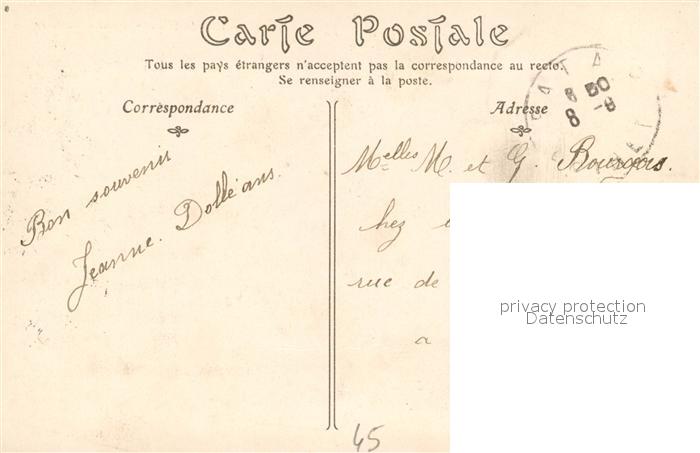 Carte Postale
Tous les pays étrangers n'acceptent pas la correspondance au recto.
Se renseigner à la poste.
Correspondance
Adresse
8 50
8 -8
Bon souvenir
Jeanne. Dolléans.
Melles M. et G. Bourgois.
chez
rue de
a
45
privacy protection
Datenschutz